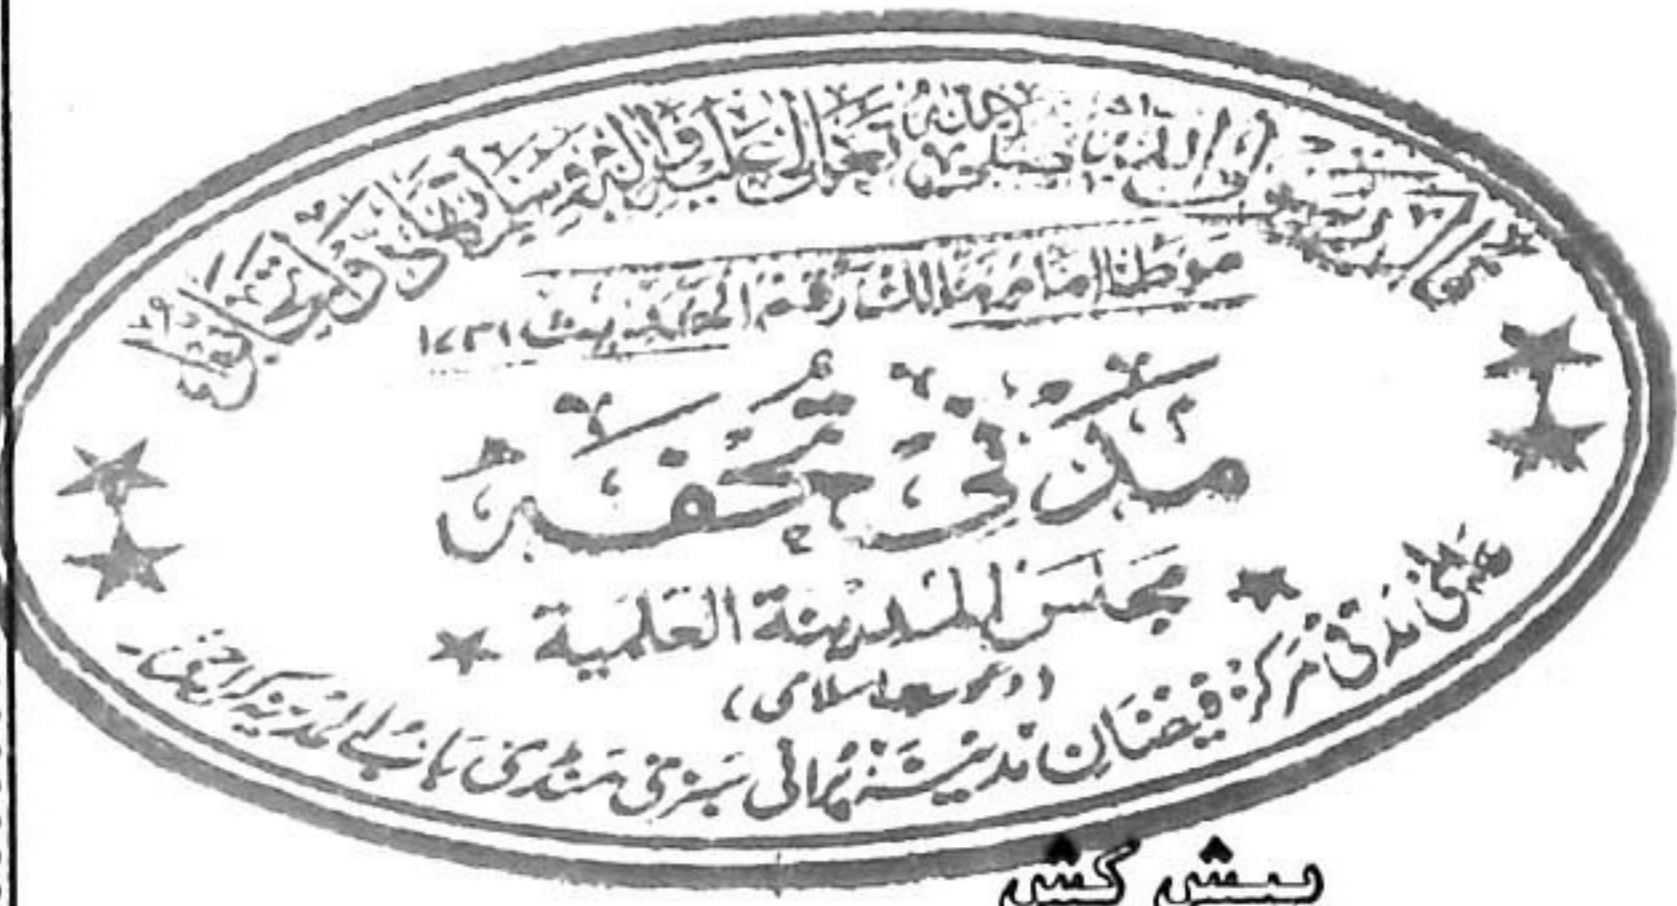 صلی اللہ تعالٰی علیہ واٰلہ وسلم تھادوا تحابوا
موطا امام مالک رقم الحدیث ۱۷۳۱
مَدَنی تُحفہ
مجلس المدینۃ العلمیۃ
(دعوت اسلامی)
عالمی مدنی مرکز فیضان مدینہ پرانی سبزی منڈی باب المدینہ کراچی
پیش کش